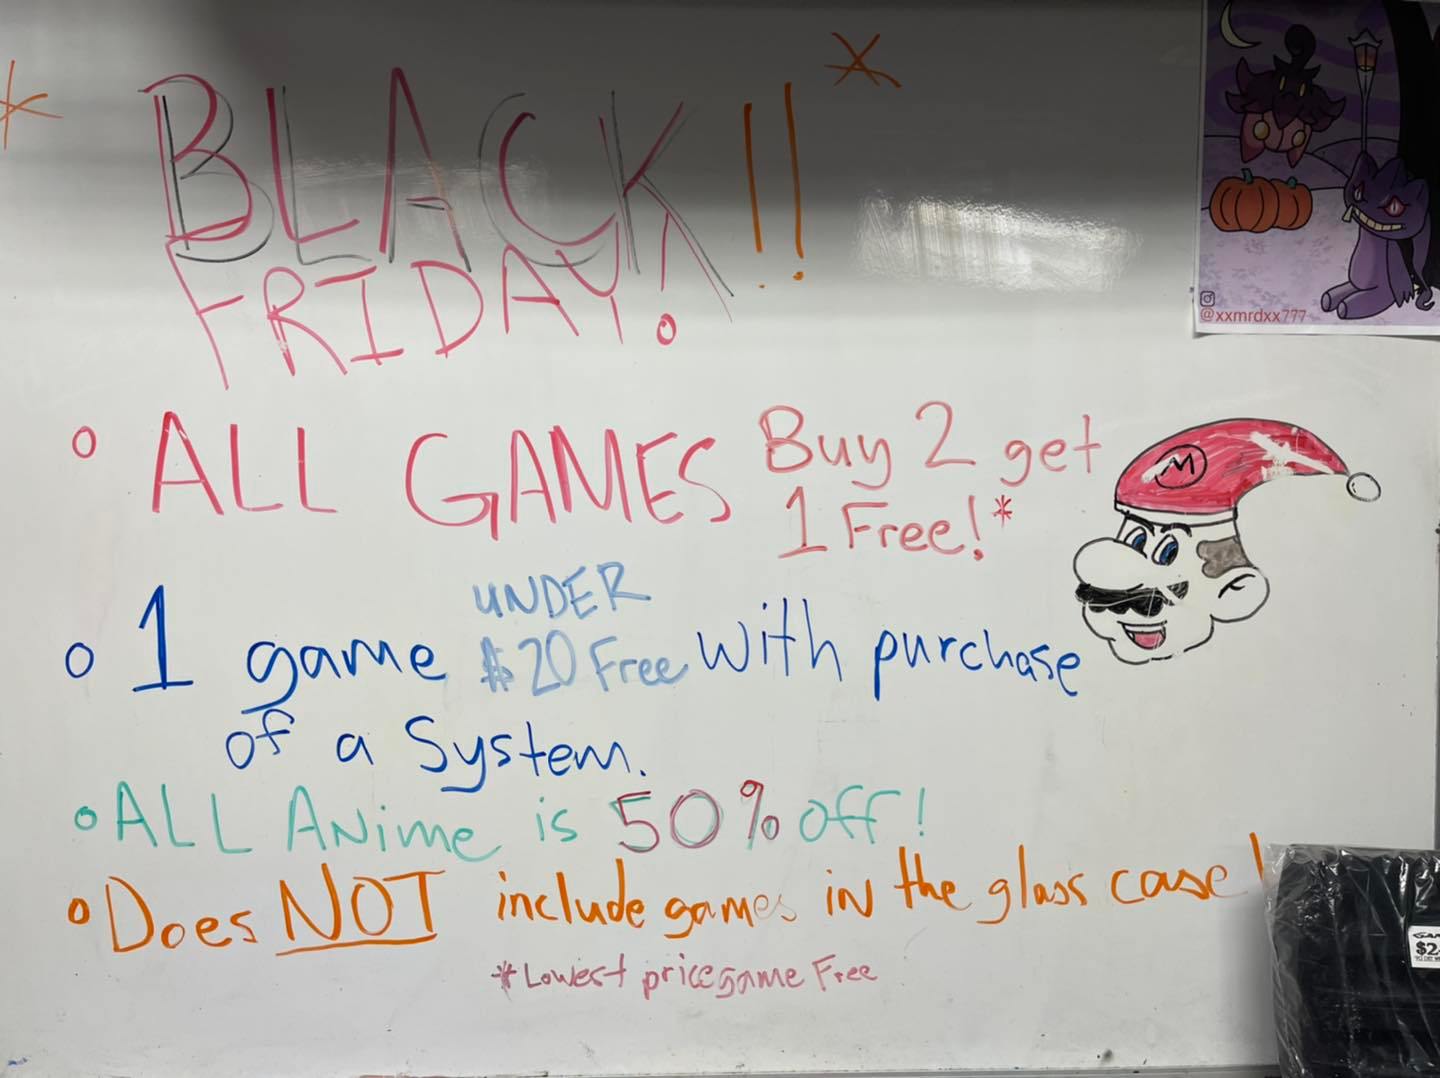 * BLACK !! *
FRIDAY!
@xxmrdxx777
° ALL GAMES Buy 2 get
1 Free!*
M
° 1 game UNDER
$20 Free with purchase
of a System.
° ALL Anime is 50% off!
° Does NOT include games in the glass case!
* Lowest price game Free
$2